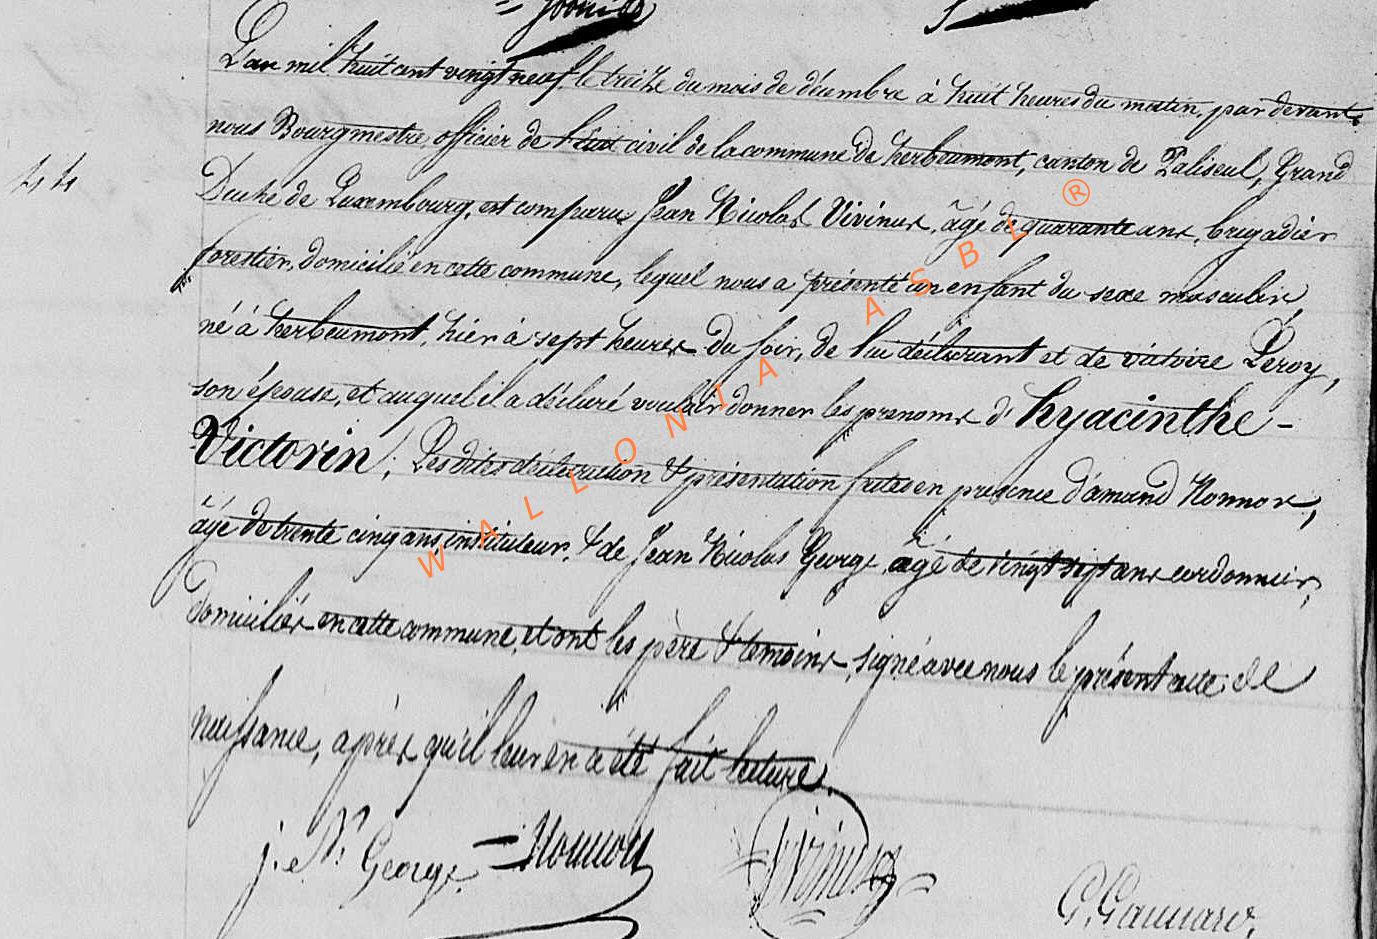 L'an mil huit cent vingt neuf, le treize du mois de décembre à huit heures du matin, par devant
nous Bourgmestre, officier de l'état civil de la commune de herbeumont, canton de Paliseul, Grand
44
Duché de Luxembourg, est comparu Jean Nicolas Vivinus, âgé de quarante ans, brigadier
forestier, domicilié en cette commune, lequel nous a présenté un enfant du sexe masculin,
né à herbeumont, hier à sept heures du soir, de lui déclarant et de victoire Leroy,
son épouse, et auquel il a déclaré vouloir donner les prenoms d'hyacinthe-
Victorin; Lesdites déclaration & présentation faites en presence d'amand Nonnon,
âgé de trente cinq ans, instituteur, & de Jean Nicolas George, âgé de vingt sept ans cordonnier,
domiciliés en cette commune, et ont les père & temoins, signé avec nous le présent acte de
naissance, après qu'il leur en a été fait lecture.
j. N. George
Nonnon
Vivinus
WALLONIA ASBL ®